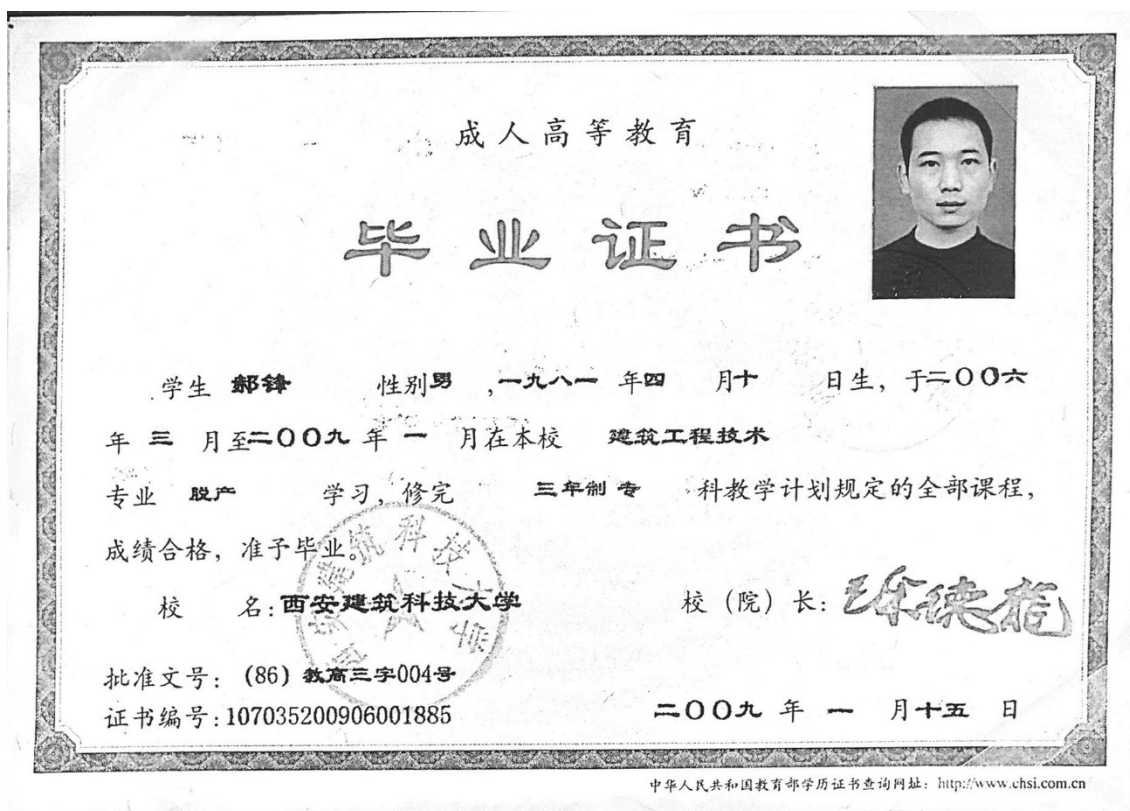 成人高等教育
毕业证书
学生 郝锋 性别男 ,一九八一 年四 月十 日生，于二〇〇六
年 三 月至二〇〇九 年 一 月在本校 建筑工程技术
专业 脱产 学习，修完 三年制 专 科教学计划规定的全部课程，
成绩合格，准予毕业。
西安建筑科技大学
校 名：西安建筑科技大学 校（院）长：徐德龙
批准文号：(86) 教高三字004号
证书编号：107035200906001885 二〇〇九 年 一 月十五 日
中华人民共和国教育部学历证书查询网址：http://www.chsi.com.cn